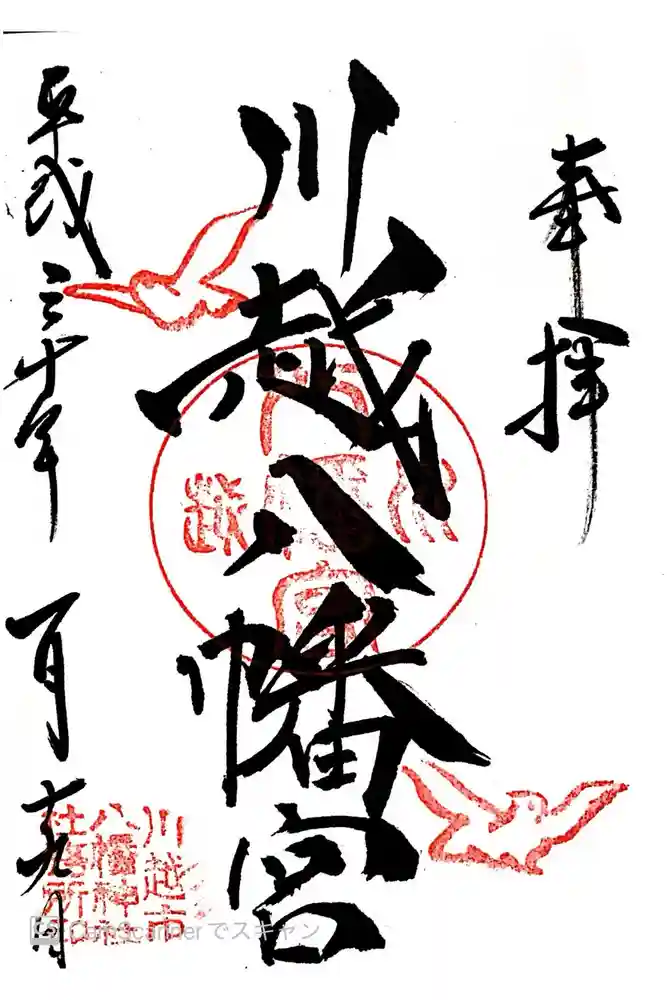 奉拝
川越八幡宮
平成三十年
一月十九日
川越
八幡宮
川越市
八幡神社
社務所印
CamScanner でスキャン